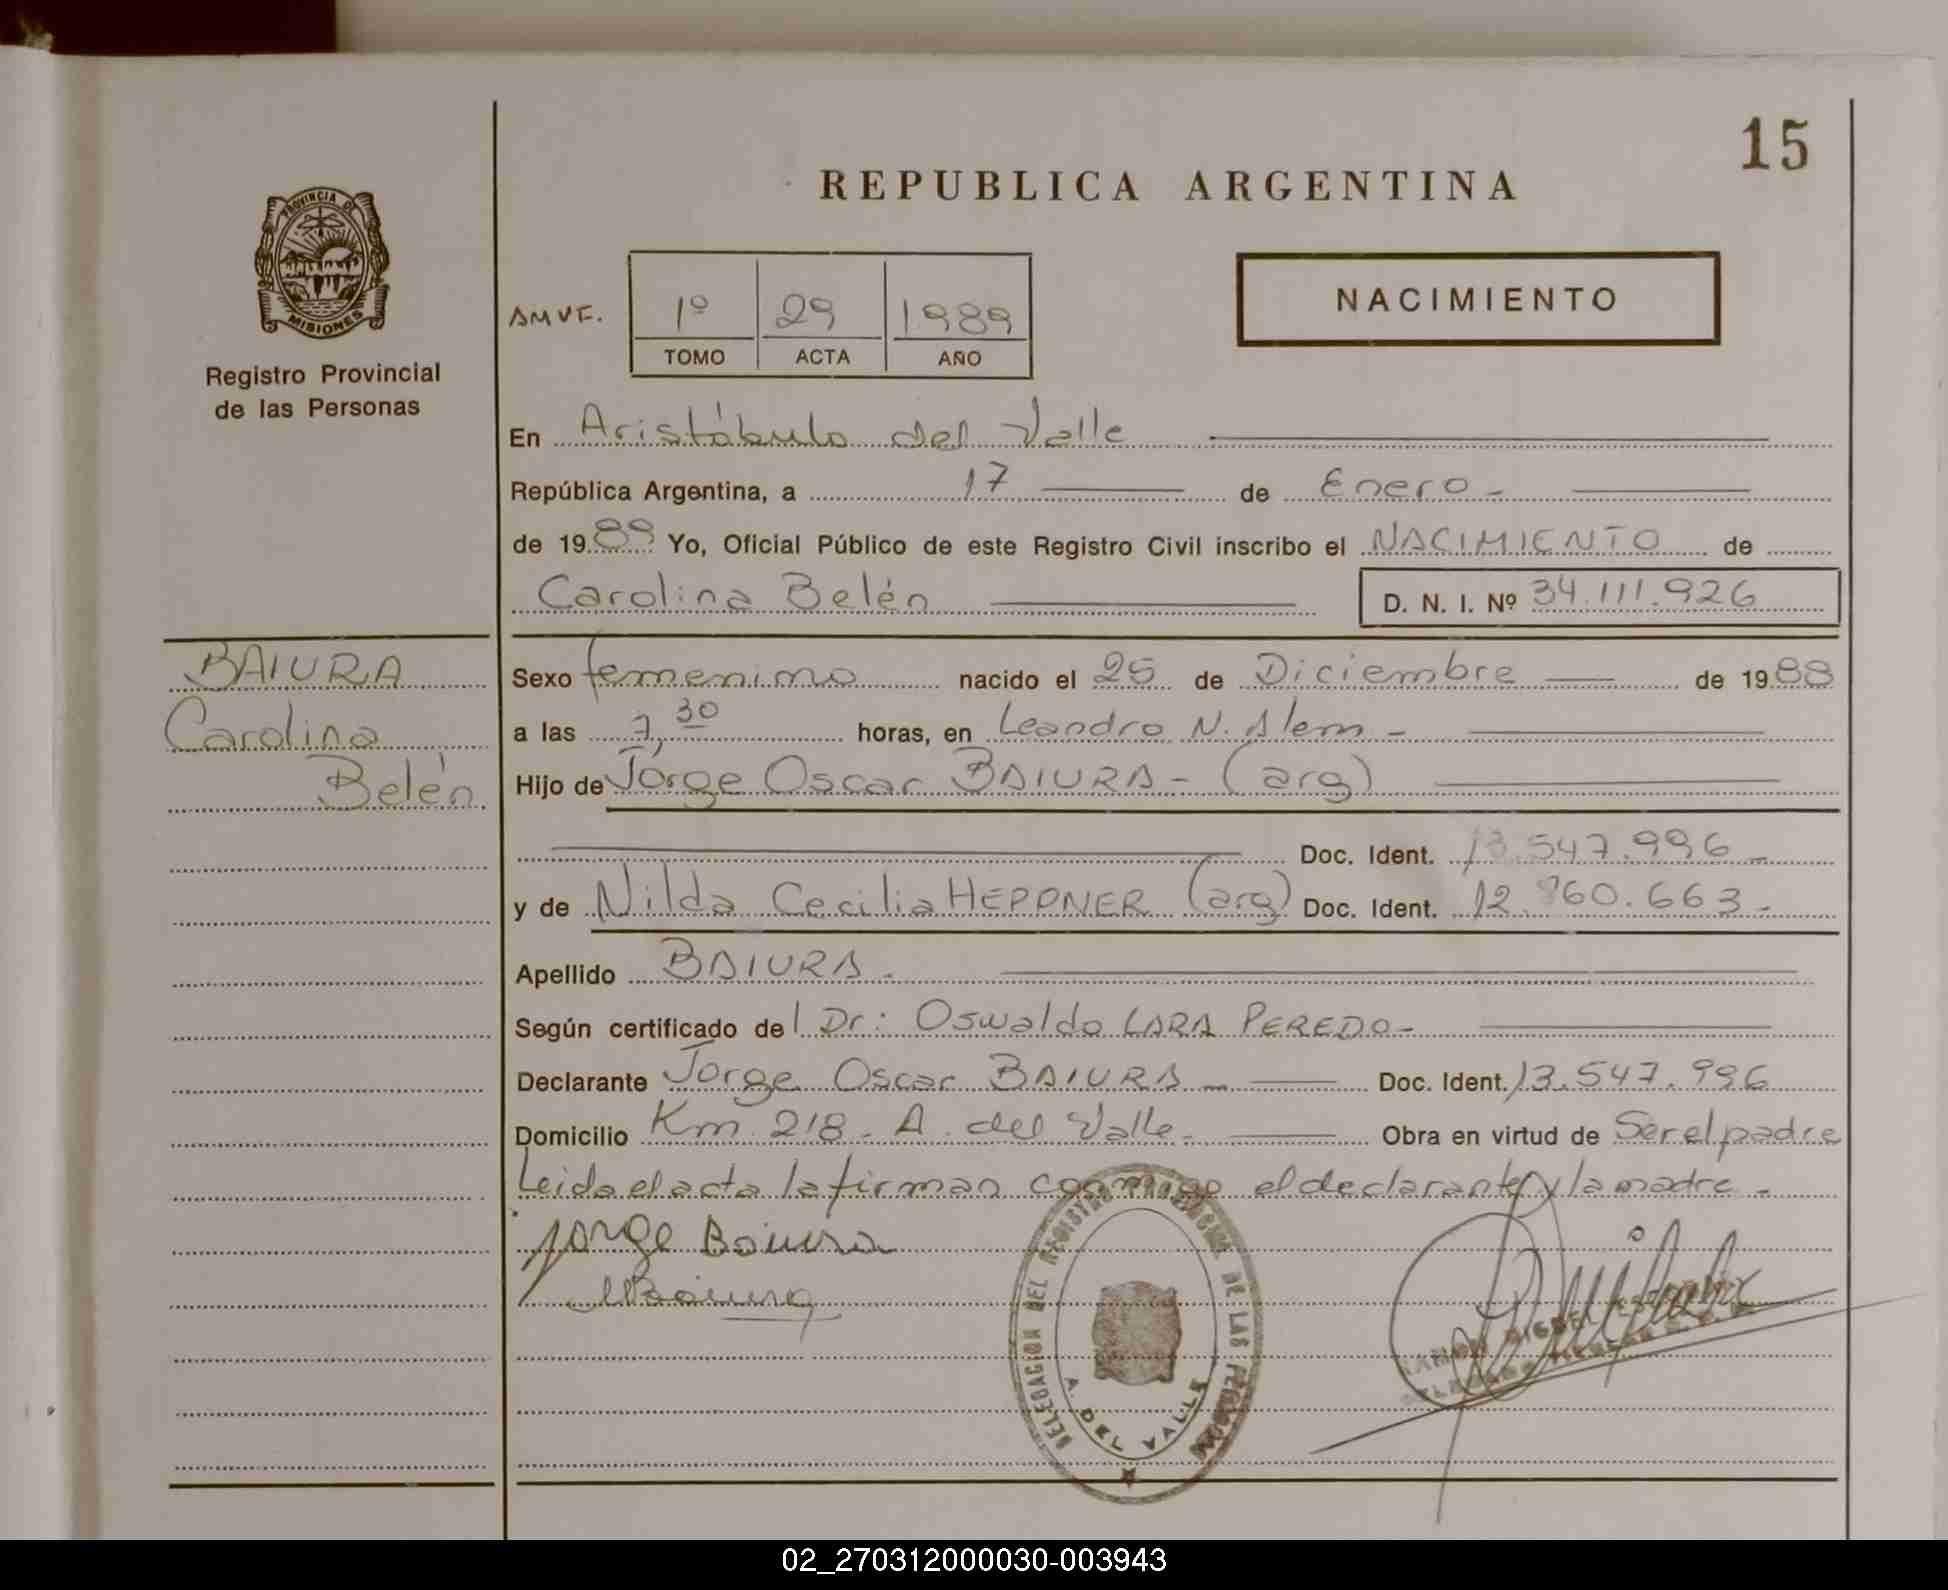 15
REPUBLICA ARGENTINA
PROVINCIA DE
MISIONES
Registro Provincial
de las Personas
AMVF. 1º 29 1989
TOMO ACTA AÑO
NACIMIENTO
En Aristóbulo del Valle
República Argentina, a 17 de Enero -
de 1989 Yo, Oficial Público de este Registro Civil inscribo el NACIMIENTO de
Carolina Belén D. N. I. Nº 34.111.926
BAIURA
Carolina
Belén
Sexo femenino nacido el 25 de Diciembre de 1988
a las 7,30 horas, en Leandro N. Alem -
Hijo de Jorge Oscar BAIURA - (arg)
Doc. Ident. 13.547.996 -
y de Nilda Cecilia HEPPNER (arg) Doc. Ident. 12.860.663 -
Apellido BAIURA -
Según certificado del Dr: Oswaldo LARA PEREDO -
Declarante Jorge Oscar BAIURA - Doc. Ident. 13.547.996
Domicilio Km 218 - A. del Valle - Obra en virtud de Ser el padre
Leida el acta la firman conmigo el declarante y la madre -
Jorge Baiura
DELEGACION DEL REGISTRO PROVINCIAL DE LAS PERSONAS
A. DEL VALLE
02_270312000030-003943